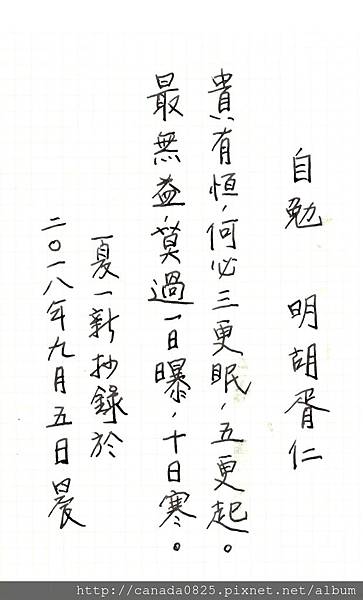 自勉　明胡胥仁
貴有恒，何必三更眠，五更起。
最無益，莫過一日曝，十日寒。
夏一新抄錄於
二〇一八年九月五日晨
http://canada0825.pixnet.net/album